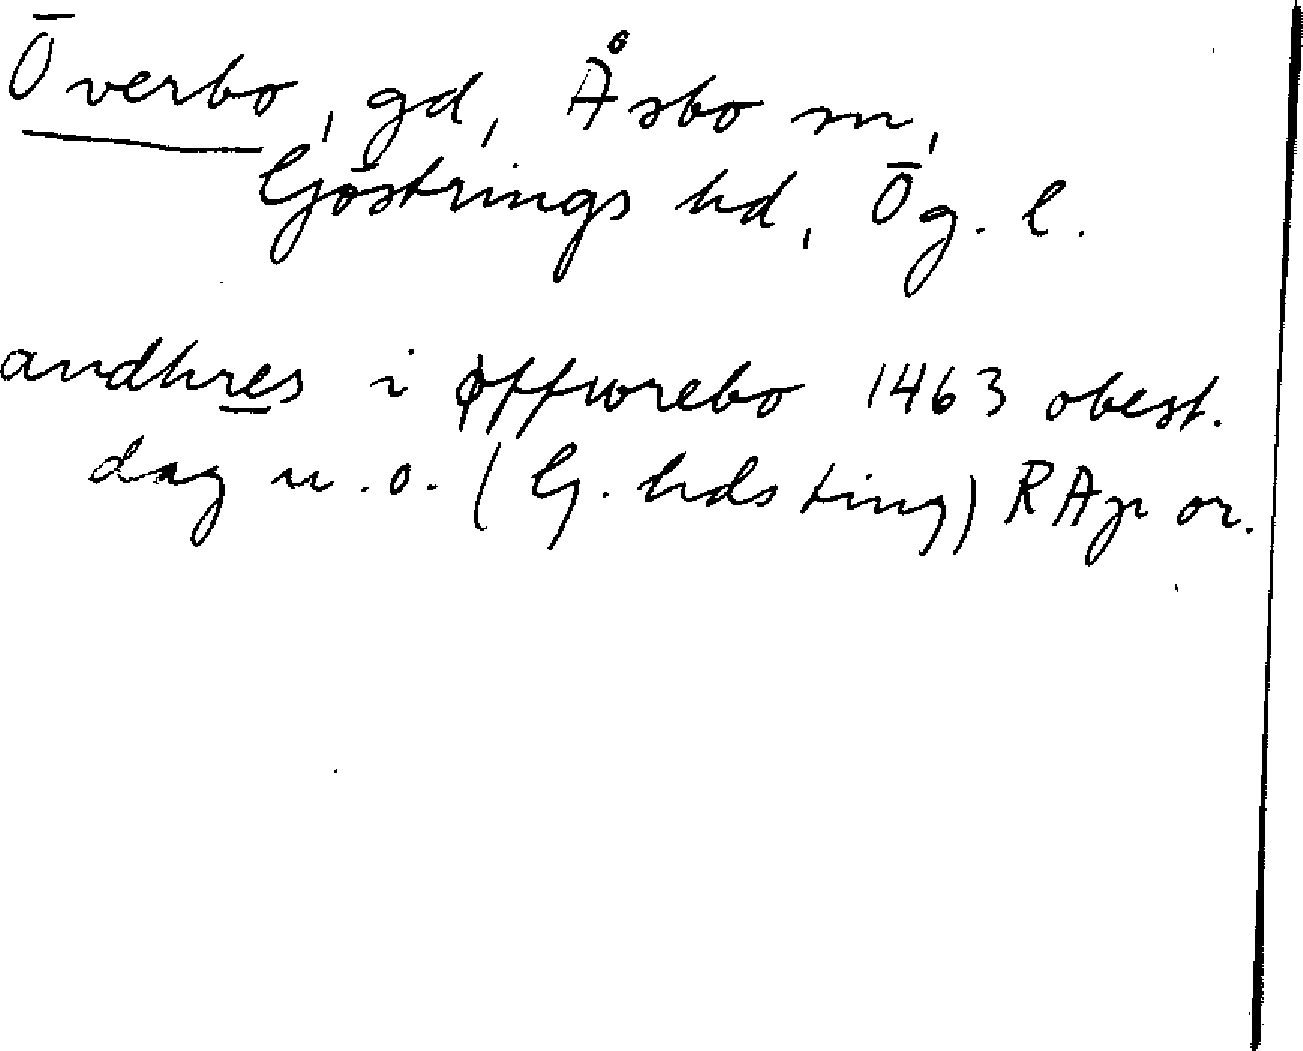 Överbo, gd, Åsbo sn,
Göstrings hd, Ög. l.
andhres i øffworebo 1463 obest.
dag u.o. (G. hds ting) RAp or.